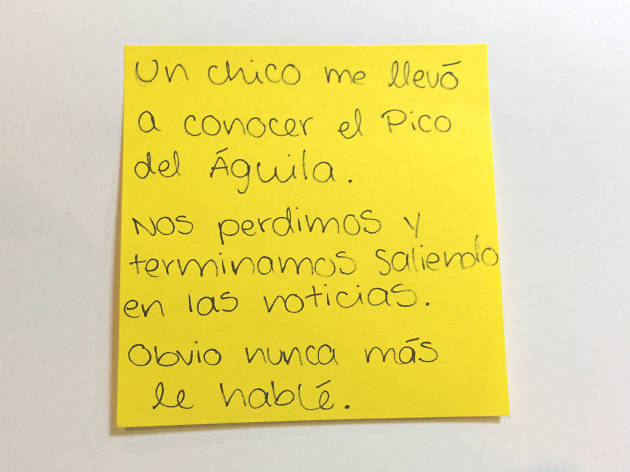 Un chico me llevó
a conocer el Pico
del Águila.
Nos perdimos y
terminamos saliendo
en las noticias.
Obvio nunca más
le hablé.